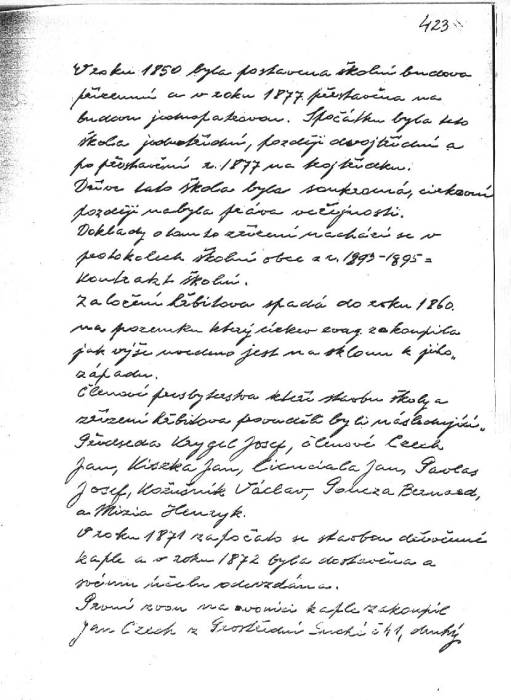 423
V roku 1850 byla postavena školní budova
přízemní a v roku 1877 přestavěna na
budovu jednopatrovou. Spočátku byla tato
škola jednotřídní, později dvojtřídní a
po přestavění r. 1877 na trojtřídku.
Dříve tato škola byla soukromá, církevní
později nabyla práva veřejnosti.
Doklady o tom to zřízení nachází se v
protokolech školní obce z r. 1893-1895 =
Kontrakt školní.
Založení hřbitova spadá do roku 1860.
na pozemku který církev evag. zakoupila
jak výše uvedeno jest na sklonu k jiho-
západu.
Členové presbyterstva kteří stavbu školy a
zřízení hřbitova provedli byli následující:
Předseda Krygel Josef, členové Czech
Jan, Kiszka Jan, Licenciala Jan, Pavlas
Josef, Kožušník Václav, Bernard,
a Mizia Henryk.
V roku 1871 započato se stavbou dřevěné
kaple a v roku 1872 byla dostavěna a
svému účelu odevzdána.
První zvon na zvonici kaple zakoupil
Jan Czech z Prostřední Suché č 41, druhý